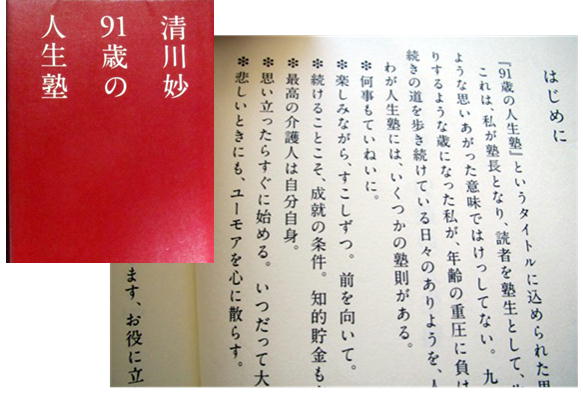 清川妙
91歳の
人生塾
はじめに
『91歳の人生塾』というタイトルに込められた思
これは、私が塾長となり、読者を塾生として、
ような思いあがった意味ではけっしてない。九
りするような歳になった私が、年齢の重圧に負け
続きの道を歩き続けている日々のありようを、
わが人生塾には、いくつかの塾則がある。
＊何事もていねいに。
＊楽しみながら、すこしずつ。前を向いて。
＊続けることこそ、成就の条件。知的貯金も
＊最高の介護人は自分自身。
＊思い立ったらすぐに始める。いつだって大
＊悲しいときにも、ユーモアを心に散らす。
ます、お役に立